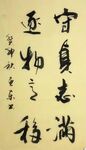 守真志滿
逐物意移